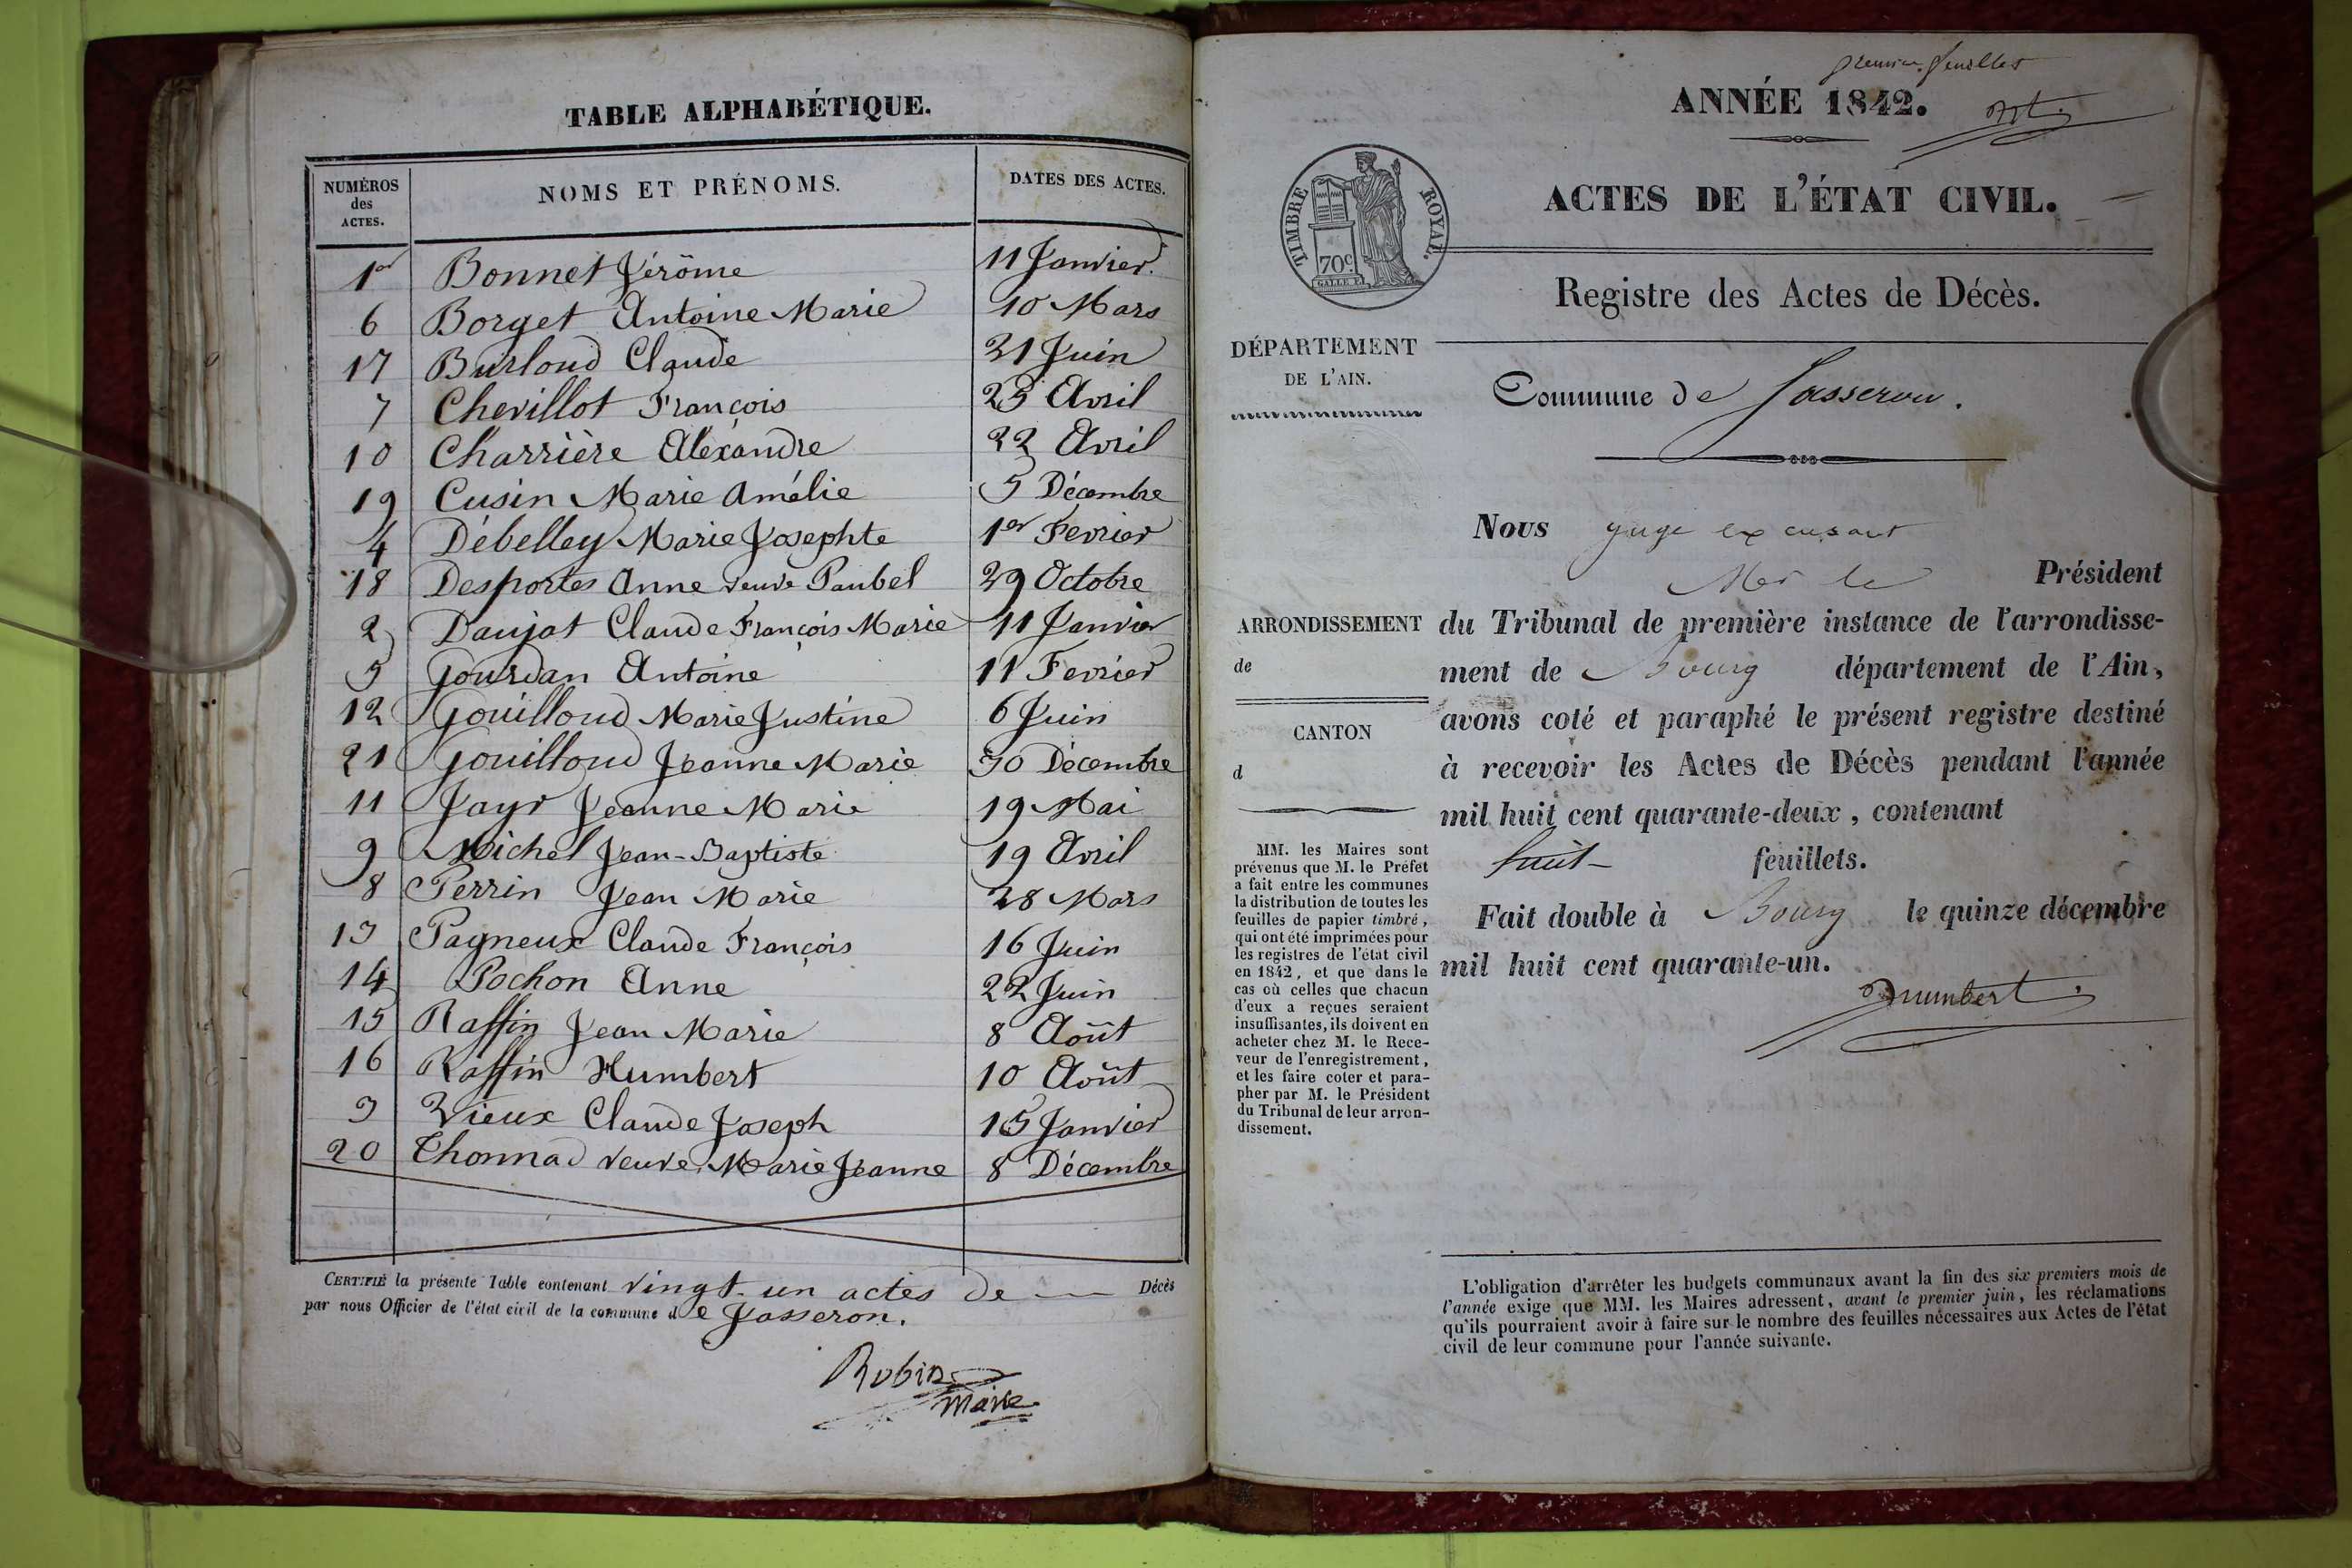 TABLE ALPHABÉTIQUE.
NUMÉROS des ACTES. NOMS ET PRÉNOMS. DATES DES ACTES.
1er Bonnet Jérôme 11 Janvier.
6 Borget Antoine Marie 10 Mars
17 Burloud Claude 21 Juin
7 Chevillot François 23 Avril
10 Charrière Aléxandre 22 Avril
19 Cusin Marie Amélie 5 Décembre
4 Débelley Marie Josephte 1er Fevrier
18 Desportes Anne veuve Paubel 29 Octobre
2 Daujat Claude François Marie 11 Janvier
5 Gourdan Antoine 11 Fevrier
12 Gouilloud Marie Justine 6 Juin
21 Gouilloud Jeanne Marie 30 Décembre
11 Jayr Jeanne Marie 19 Mai
9 Michel Jean-Baptiste 19 Avril
8 Perrin Jean Marie 28 Mars
13 Pagneux Claude François 16 Juin
14 Pochon Anne 22 Juin
15 Raffin Jean Marie 8 Août
16 Raffin Humbert 10 Août
3 Vieux Claude Joseph 15 Janvier
20 Thonnad veuve Marie Jeanne 8 Décembre
CERTIFIÉ la présente Table contenant vingt-un actes de Décès
par nous Officier de l'état civil de la commune de Jasseron.
Robin
Maire
premier feuillet
ANNÉE 1842.
ACTES DE L'ÉTAT CIVIL.
TIMBRE ROYAL.
70c
Registre des Actes de Décès.
DÉPARTEMENT
DE L'AIN.
Commune de Jasseron.
Nous juge excusant
Mr le Président
ARRONDISSEMENT
de
CANTON
d
du Tribunal de première instance de l'arrondisse-
ment de Bourg département de l'Ain,
avons coté et paraphé le présent registre destiné
à recevoir les Actes de Décès pendant l'année
mil huit cent quarante-deux, contenant
huit feuillets.
Fait double à Bourg le quinze décembre
mil huit cent quarante-un.
MM. les Maires sont
prévenus que M. le Préfet
a fait entre les communes
la distribution de toutes les
feuilles de papier timbré,
qui ont été imprimées pour
les registres de l'état civil
en 1842, et que dans le
cas où celles que chacun
d'eux a reçues seraient
insuffisantes, ils doivent en
acheter chez M. le Rece-
veur de l'enregistrement,
et les faire coter et para-
pher par M. le Président
du Tribunal de leur arron-
dissement.
L'obligation d'arrêter les budgets communaux avant la fin des six premiers mois de
l'année exige que MM. les Maires adressent, avant le premier juin, les réclamations
qu'ils pourraient avoir à faire sur le nombre des feuilles nécessaires aux Actes de l'état
civil de leur commune pour l'année suivante.